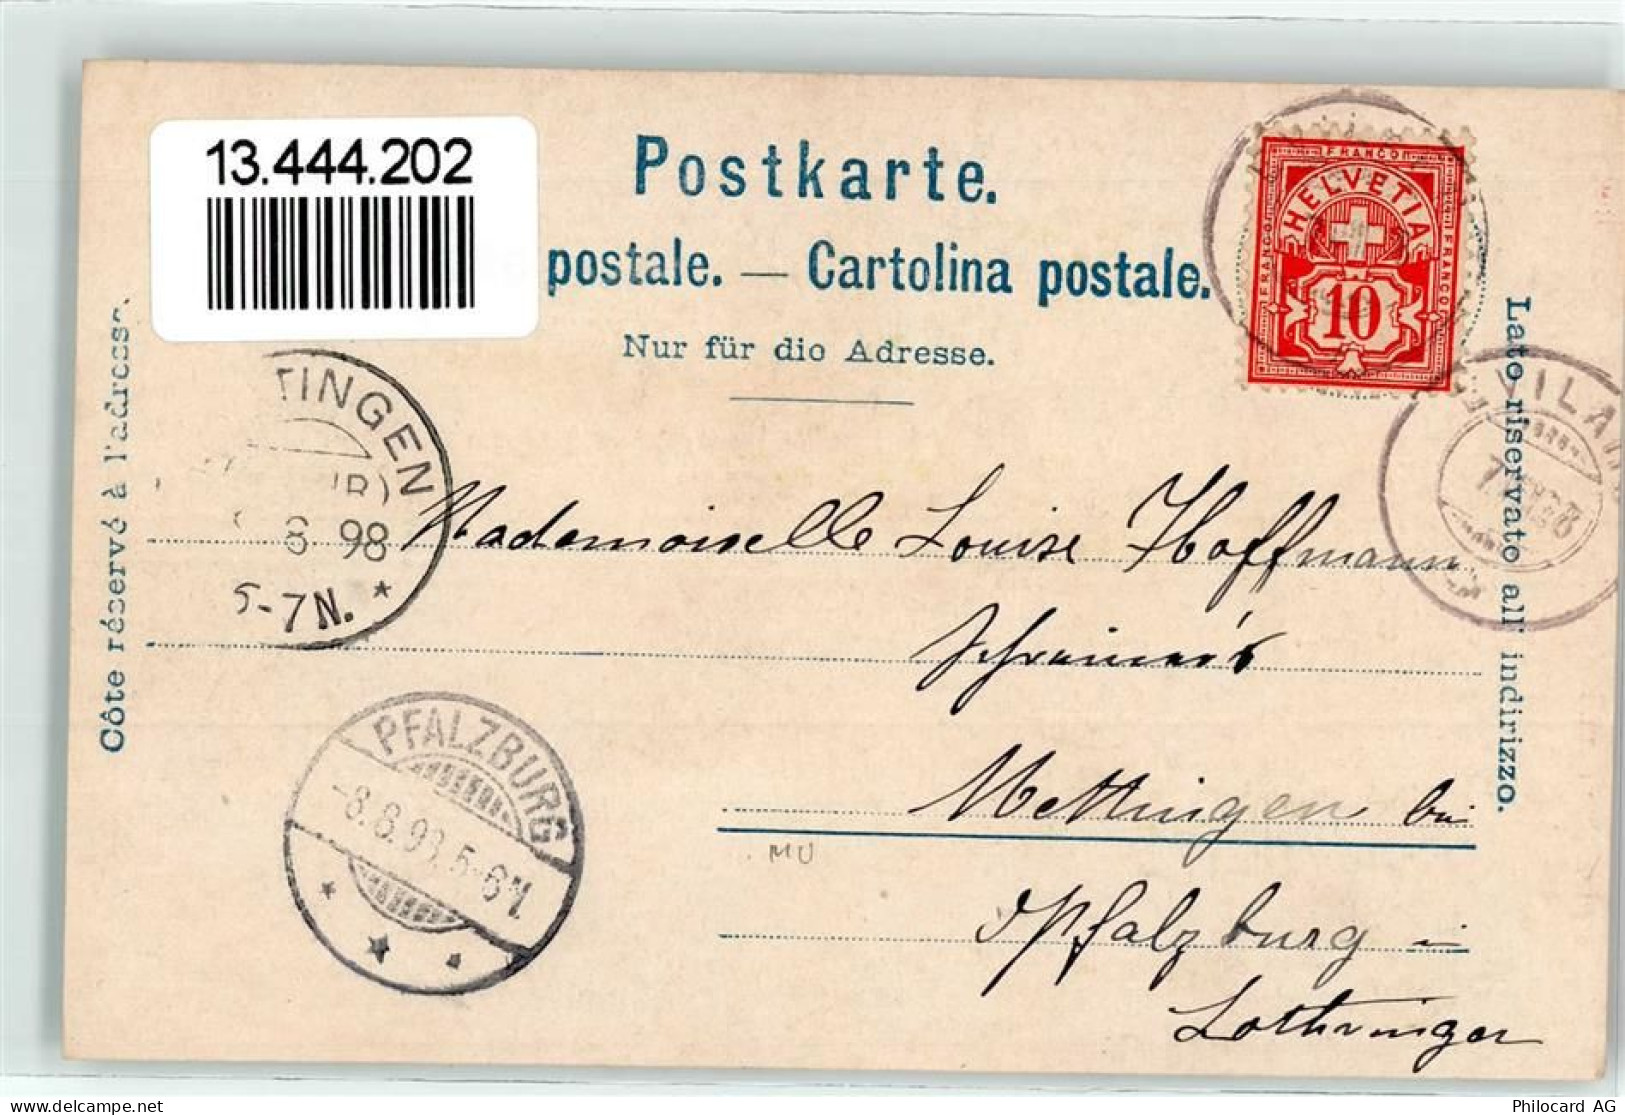 13.444.202
Postkarte.
postale. — Cartolina postale.
Nur für die Adresse.
Côte réservé à l'adresse.
Lato riservato all' indirizzo.
FRANCO
HELVETIA
FRANCO
FRANCO
10
TINGEN
8 98
5-7N. *
VILA
7
98
Mademoiselle Louise Hoffmann
Mettingen bei
Pfalzburg in
Lothringen
MU
PFALZBURG
-8.8.98.5-6N.
Philocard AG